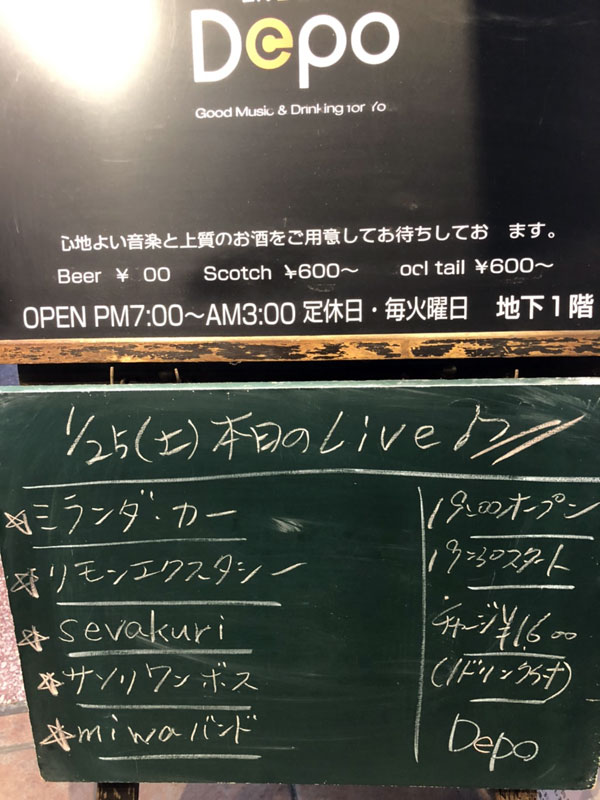 Depo
Good Music & Drinking for Yo
心地よい音楽と上質のお酒をご用意してお待ちしてお ます。
Beer ¥ 00 Scotch ¥600〜 ocl tail ¥600〜
OPEN PM7:00〜AM3:00 定休日・毎火曜日 地下1階
1/25(土)本日のLive♪
☆ミランダ・カー
☆リモンエクスタシー
☆sevakuri
☆サソリワンボス
☆miwaバンド
19:00オープン
19:30スタート
チャージ¥1,600
(1ドリンク付)
Depo